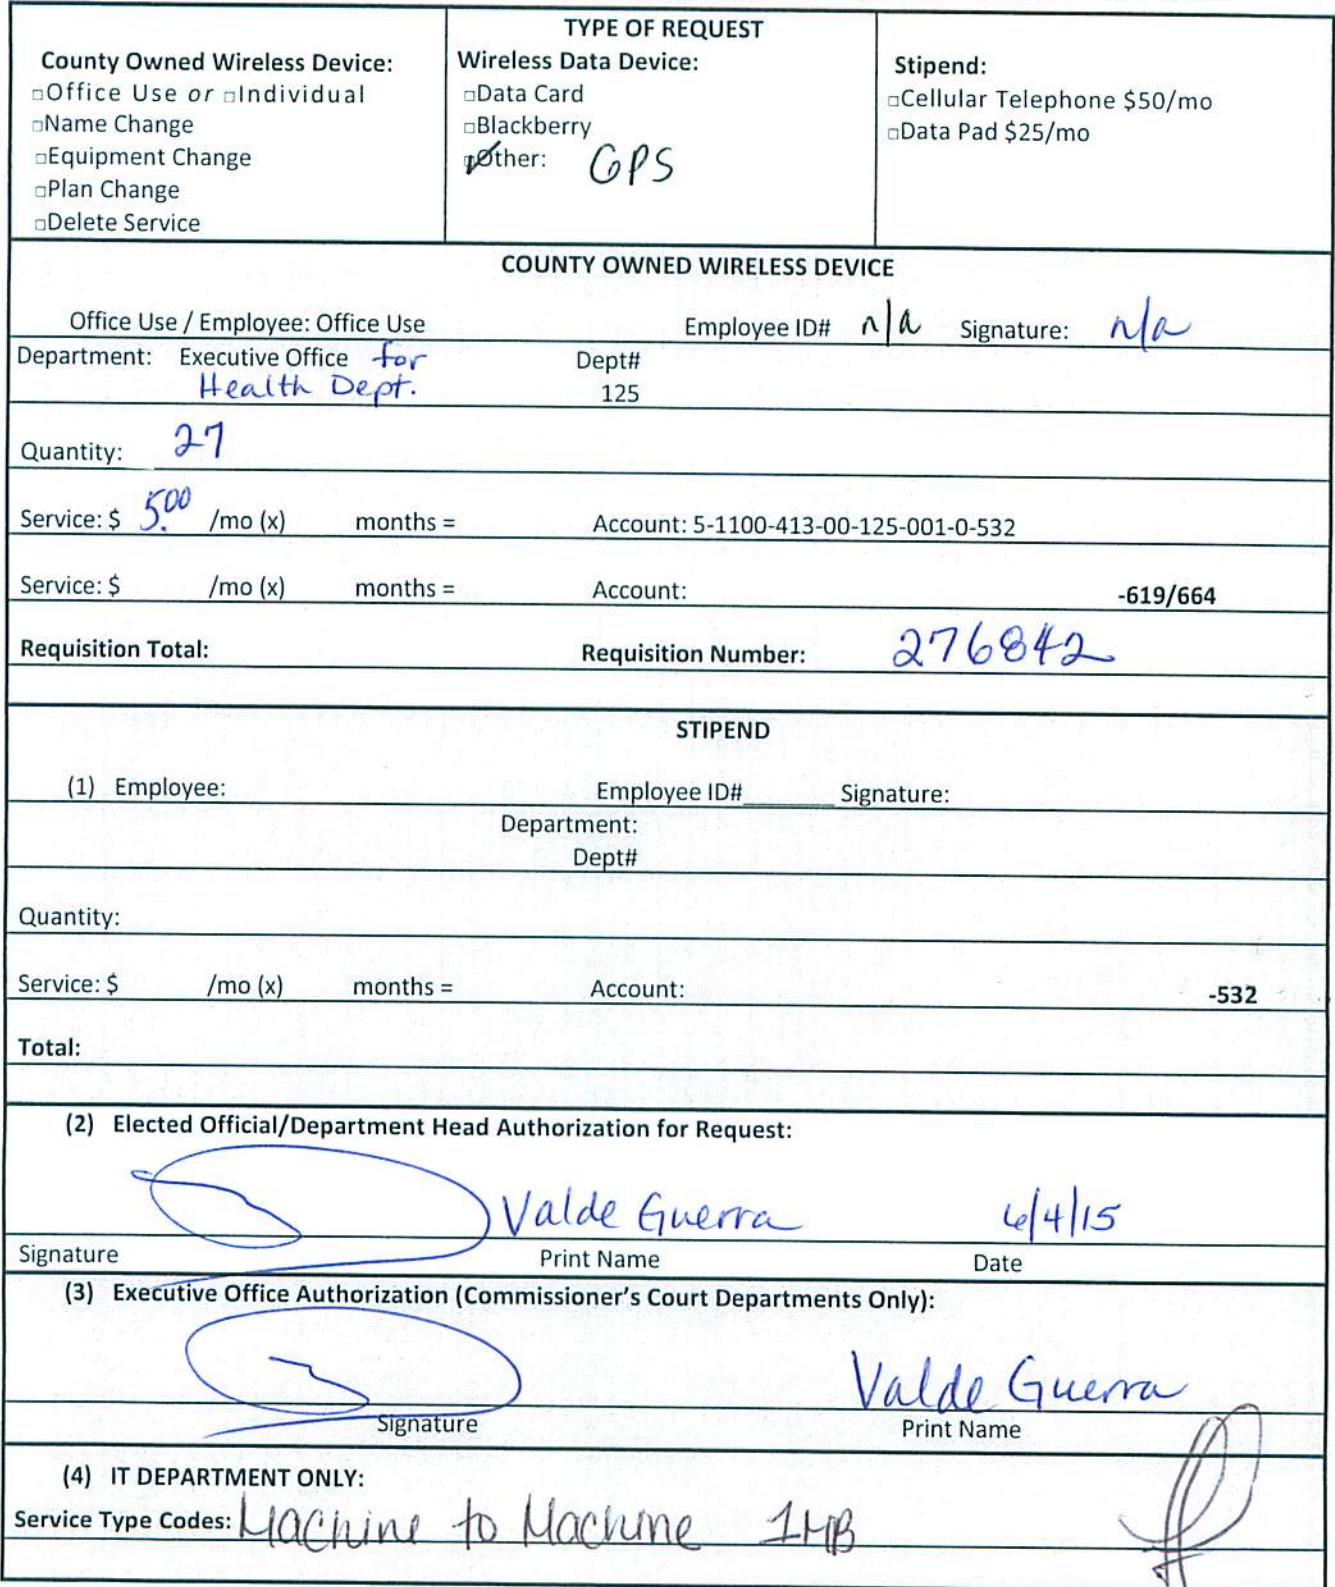 TYPE OF REQUEST
County Owned Wireless Device:
□Office Use or □Individual
□Name Change
□Equipment Change
□Plan Change
□Delete Service
Wireless Data Device:
□Data Card
□Blackberry
□Other: GPS
Stipend:
□Cellular Telephone $50/mo
□Data Pad $25/mo
COUNTY OWNED WIRELESS DEVICE
Office Use / Employee: Office Use Employee ID# n/a Signature: n/a
Department: Executive Office for Dept#
Health Dept. 125
Quantity: 27
Service: $ 5.00 /mo (x) months = Account: 5-1100-413-00-125-001-0-532
Service: $ /mo (x) months = Account: -619/664
Requisition Total: Requisition Number: 276842
STIPEND
(1) Employee: Employee ID#______ Signature:
Department:
Dept#
Quantity:
Service: $ /mo (x) months = Account: -532
Total:
(2) Elected Official/Department Head Authorization for Request:
Valde Guerra 6/4/15
Signature Print Name Date
(3) Executive Office Authorization (Commissioner's Court Departments Only):
Valde Guerra
Signature Print Name
(4) IT DEPARTMENT ONLY:
Service Type Codes: Machine to Machine 1MB